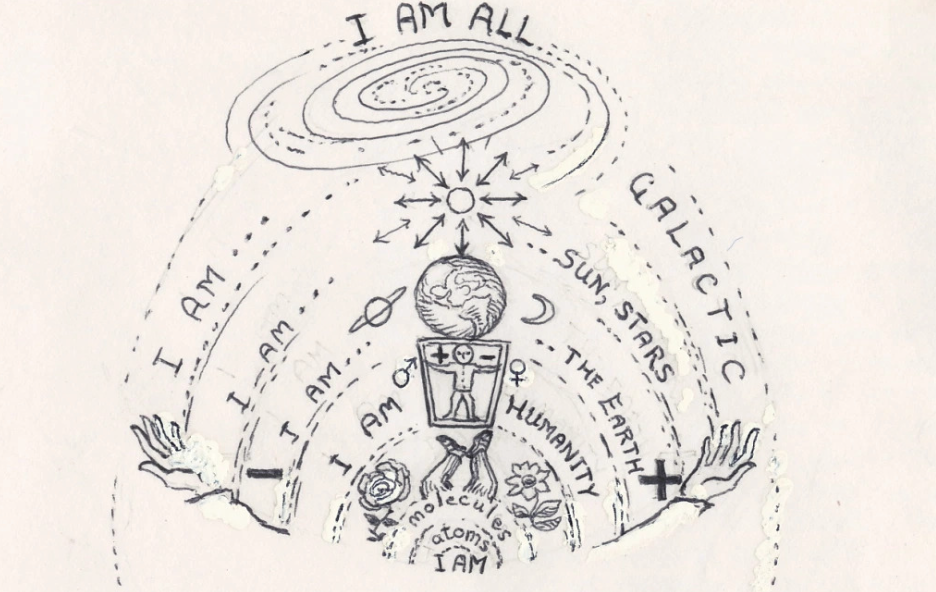 I AM ALL
I AM GALACTIC
I AM SUN, STARS
I AM THE EARTH
I AM HUMANITY
+ -
- +
molecules
atoms
I AM